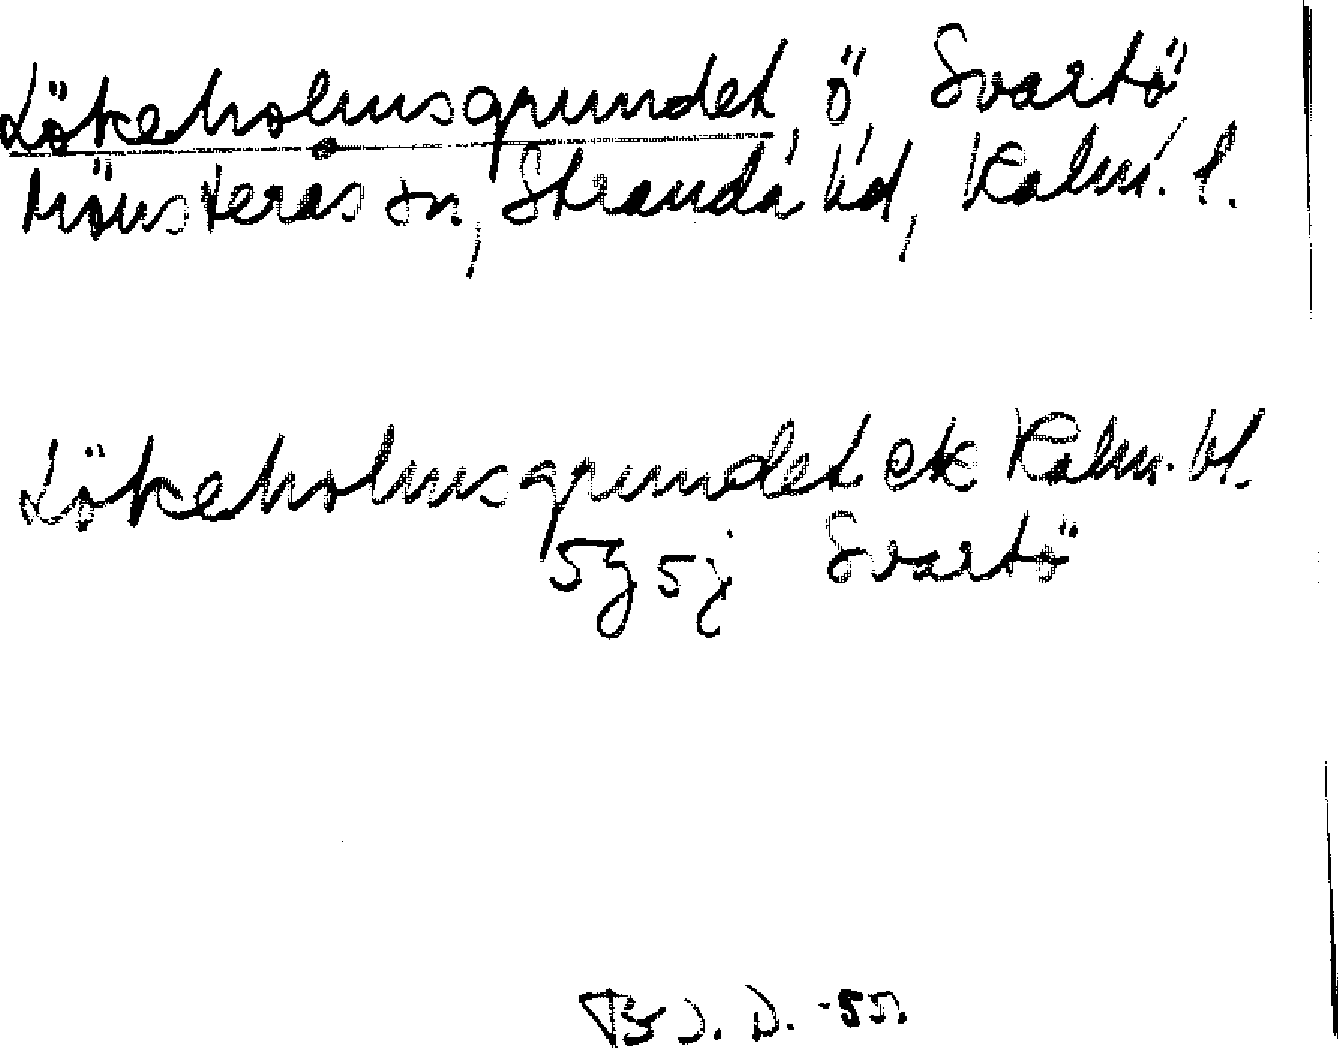 Lökeholmsgrundet ö Svartö
Mönsterås sn, Stranda hd, Kalm. l.
Lökeholmsgrundet ek Kalm. bl.
5g5j Svartö
B J. D. -55.